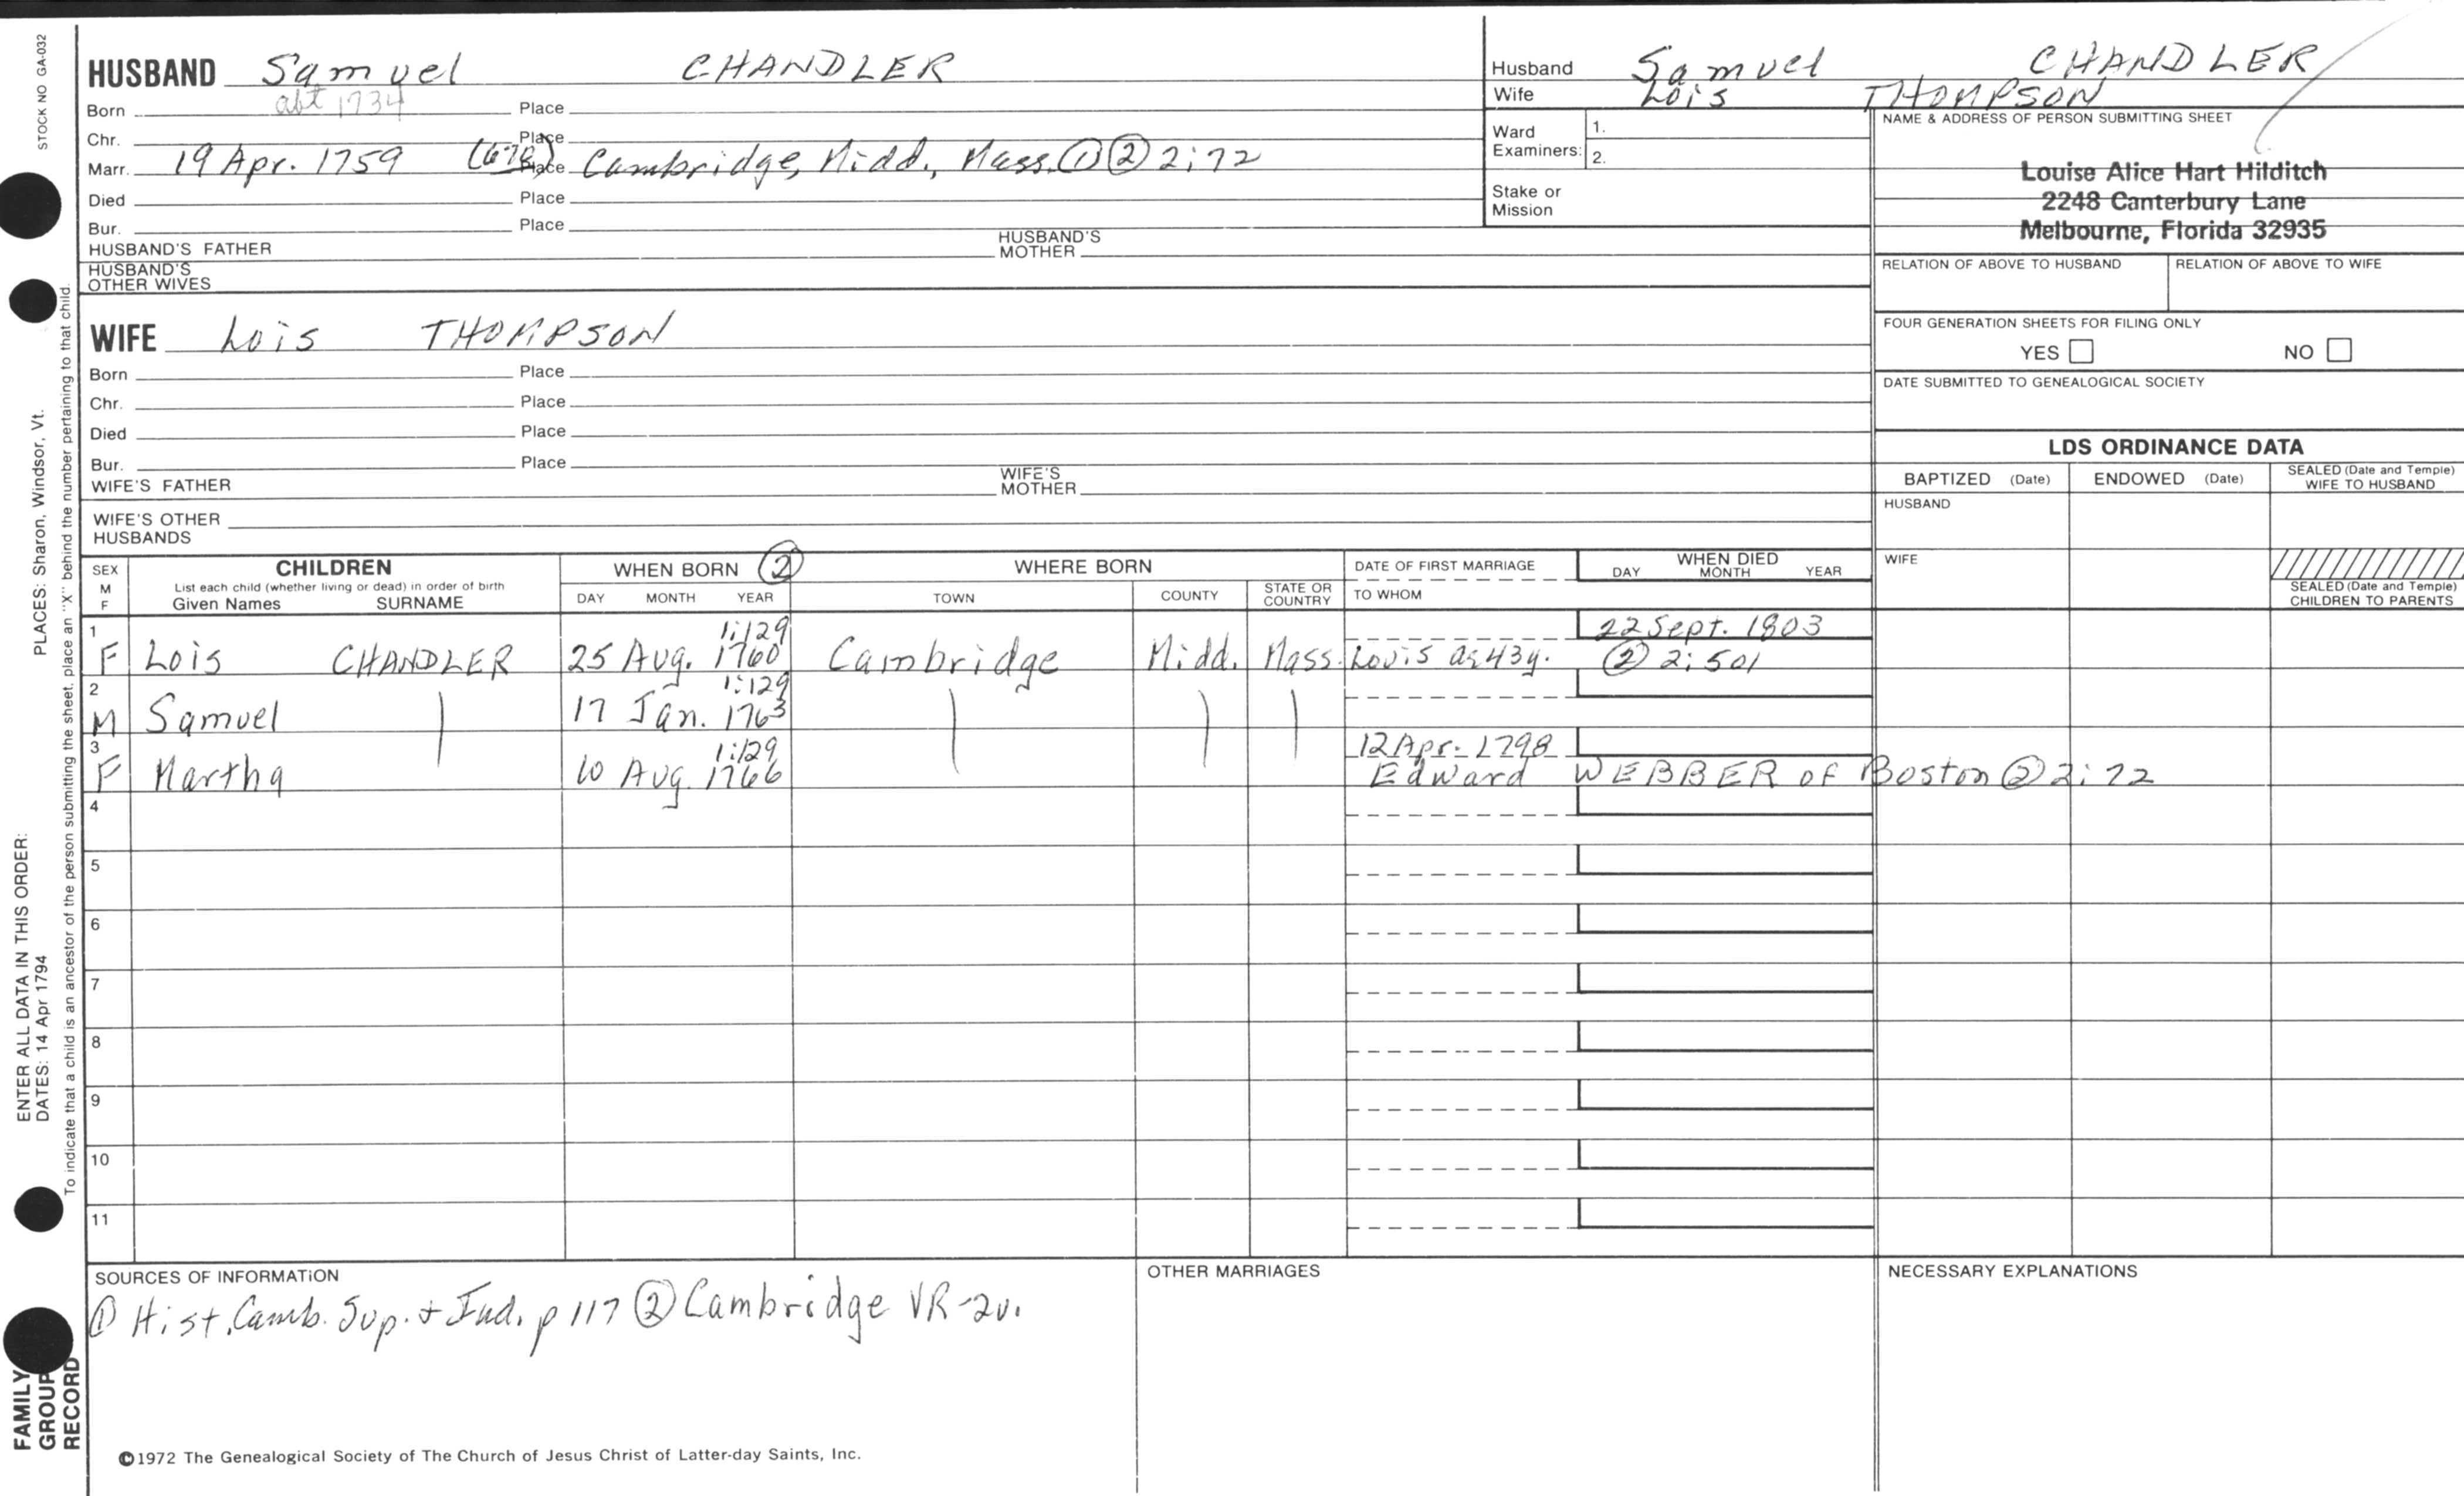 STOCK NO GA-032
PLACES: Sharon, Windsor, Vt.
ENTER ALL DATA IN THIS ORDER:
DATES: 14 Apr 1794
To indicate that a child is an ancestor of the person submitting the sheet, place an "X" behind the number pertaining to that child.
FAMILY
GROUP
RECORD
HUSBAND Samuel CHANDLER
Born abt 1734 Place
Chr. Place
Marr. 19 Apr. 1759 Place Cambridge, Midd., Mass. ① ② 2:72
Died Place
Bur. Place
HUSBAND'S FATHER HUSBAND'S MOTHER
HUSBAND'S OTHER WIVES
WIFE Lois THOMPSON
Born Place
Chr. Place
Died Place
Bur. Place
WIFE'S FATHER WIFE'S MOTHER
WIFE'S OTHER HUSBANDS
Husband Samuel CHANDLER
Wife Lois THOMPSON
Ward Examiners: 1.
2.
Stake or Mission
NAME & ADDRESS OF PERSON SUBMITTING SHEET
Louise Alice Hart Hilditch
2248 Canterbury Lane
Melbourne, Florida 32935
RELATION OF ABOVE TO HUSBAND RELATION OF ABOVE TO WIFE
FOUR GENERATION SHEETS FOR FILING ONLY
YES NO
DATE SUBMITTED TO GENEALOGICAL SOCIETY
LDS ORDINANCE DATA
BAPTIZED (Date) ENDOWED (Date) SEALED (Date and Temple) WIFE TO HUSBAND
HUSBAND
WIFE
SEALED (Date and Temple) CHILDREN TO PARENTS
SEX M F CHILDREN WHEN BORN ② WHERE BORN DATE OF FIRST MARRIAGE WHEN DIED
List each child (whether living or dead) in order of birth
Given Names SURNAME DAY MONTH YEAR TOWN COUNTY STATE OR COUNTRY TO WHOM DAY MONTH YEAR
1 1:129 22 Sept. 1803
F Lois CHANDLER 25 Aug. 1760 Cambridge Midd. Mass. Louis as 43y. ② 2:501
2 1:129
M Samuel 17 Jan. 1763
3 1:129 12 Apr. 1798
F Martha 10 Aug. 1766 Edward WEBBER of Boston ② 2:72
4
5
6
7
8
9
10
11
SOURCES OF INFORMATION OTHER MARRIAGES NECESSARY EXPLANATIONS
① Hist. Camb. Sup. + Ind. p 117 ② Cambridge VR-2v.
©1972 The Genealogical Society of The Church of Jesus Christ of Latter-day Saints, Inc.